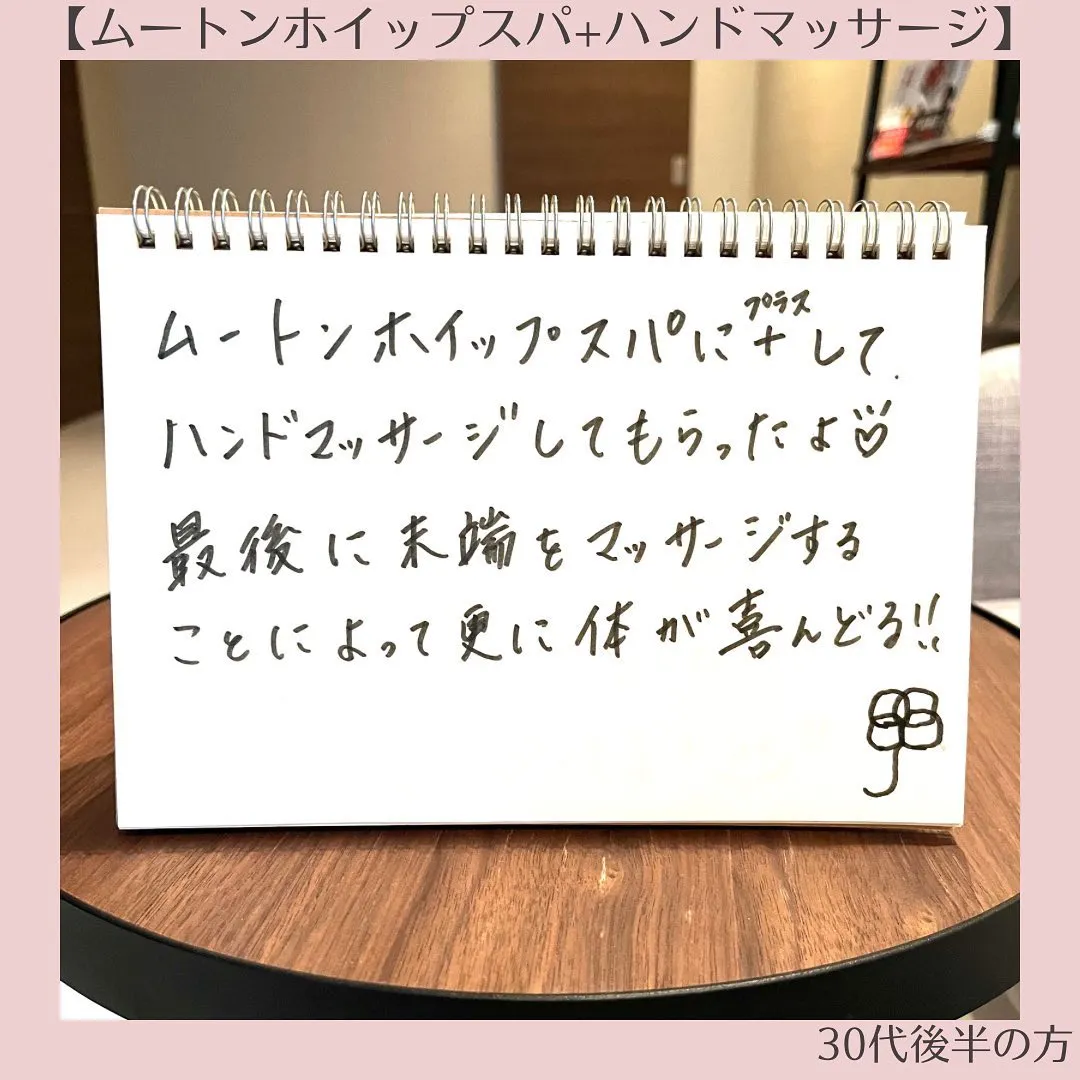 【ムートンホイップスパ+ハンドマッサージ】
プラス
ムートンホイップスパに+して、
ハンドマッサージしてもらったよ♡
最後に末端をマッサージする
ことによって更に体が喜んどる!!
30代後半の方